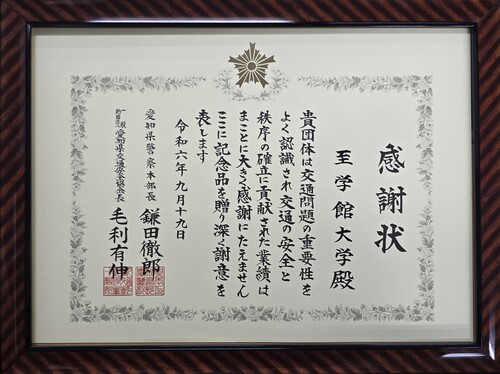 感謝状
至学館大学殿
貴団体は交通問題の重要性を
よく認識され交通の安全と
秩序の確立に貢献された業績は
まことに大きく感謝にたえません
ここに記念品を贈り深く謝意を
表します
令和六年九月十九日
愛知県警察本部長 鎌田徹郎
一般財団法人 愛知県交通安全協会長 毛利有伸